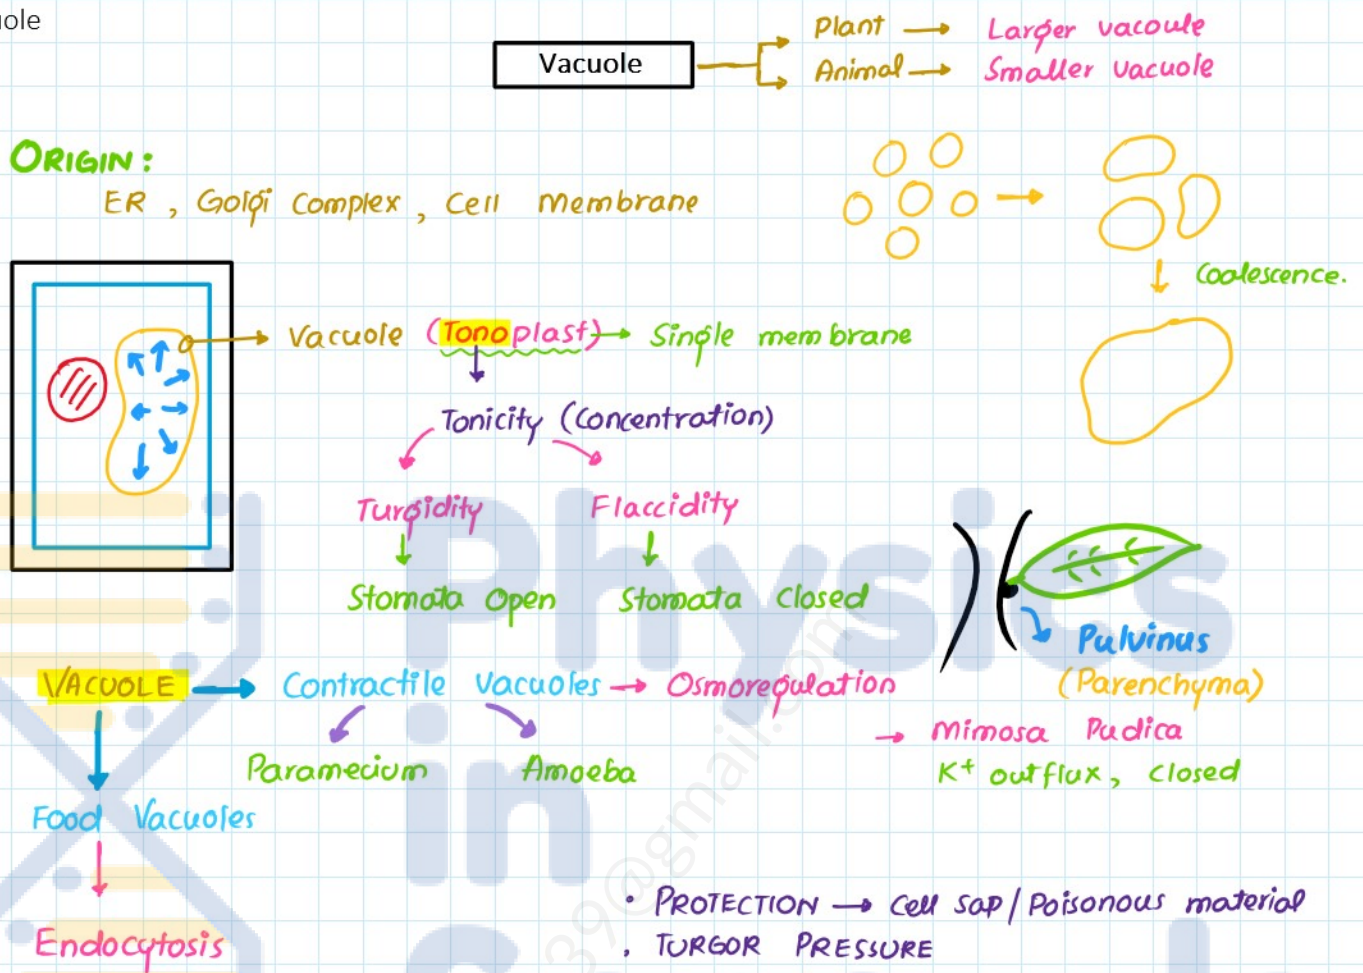 uole
Plant → Larger vacoule
Vacuole
Animal → Smaller vacuole
ORIGIN:
ER, Golgi Complex, Cell Membrane
Coalescence.
Vacuole (Tonoplast) → Single membrane
Tonicity (Concentration)
Turgidity Flaccidity
Stomata Open Stomata Closed
Pulvinus
(Parenchyma)
VACUOLE → Contractile Vacuoles → Osmoregulation
→ Mimosa Pudica
Paramecium Amoeba K+ outflux, closed
Food Vacuoles
Endocytosis
• PROTECTION → Cell sap/Poisonous material
. TURGOR PRESSURE
Physics
in
39@gmail.com